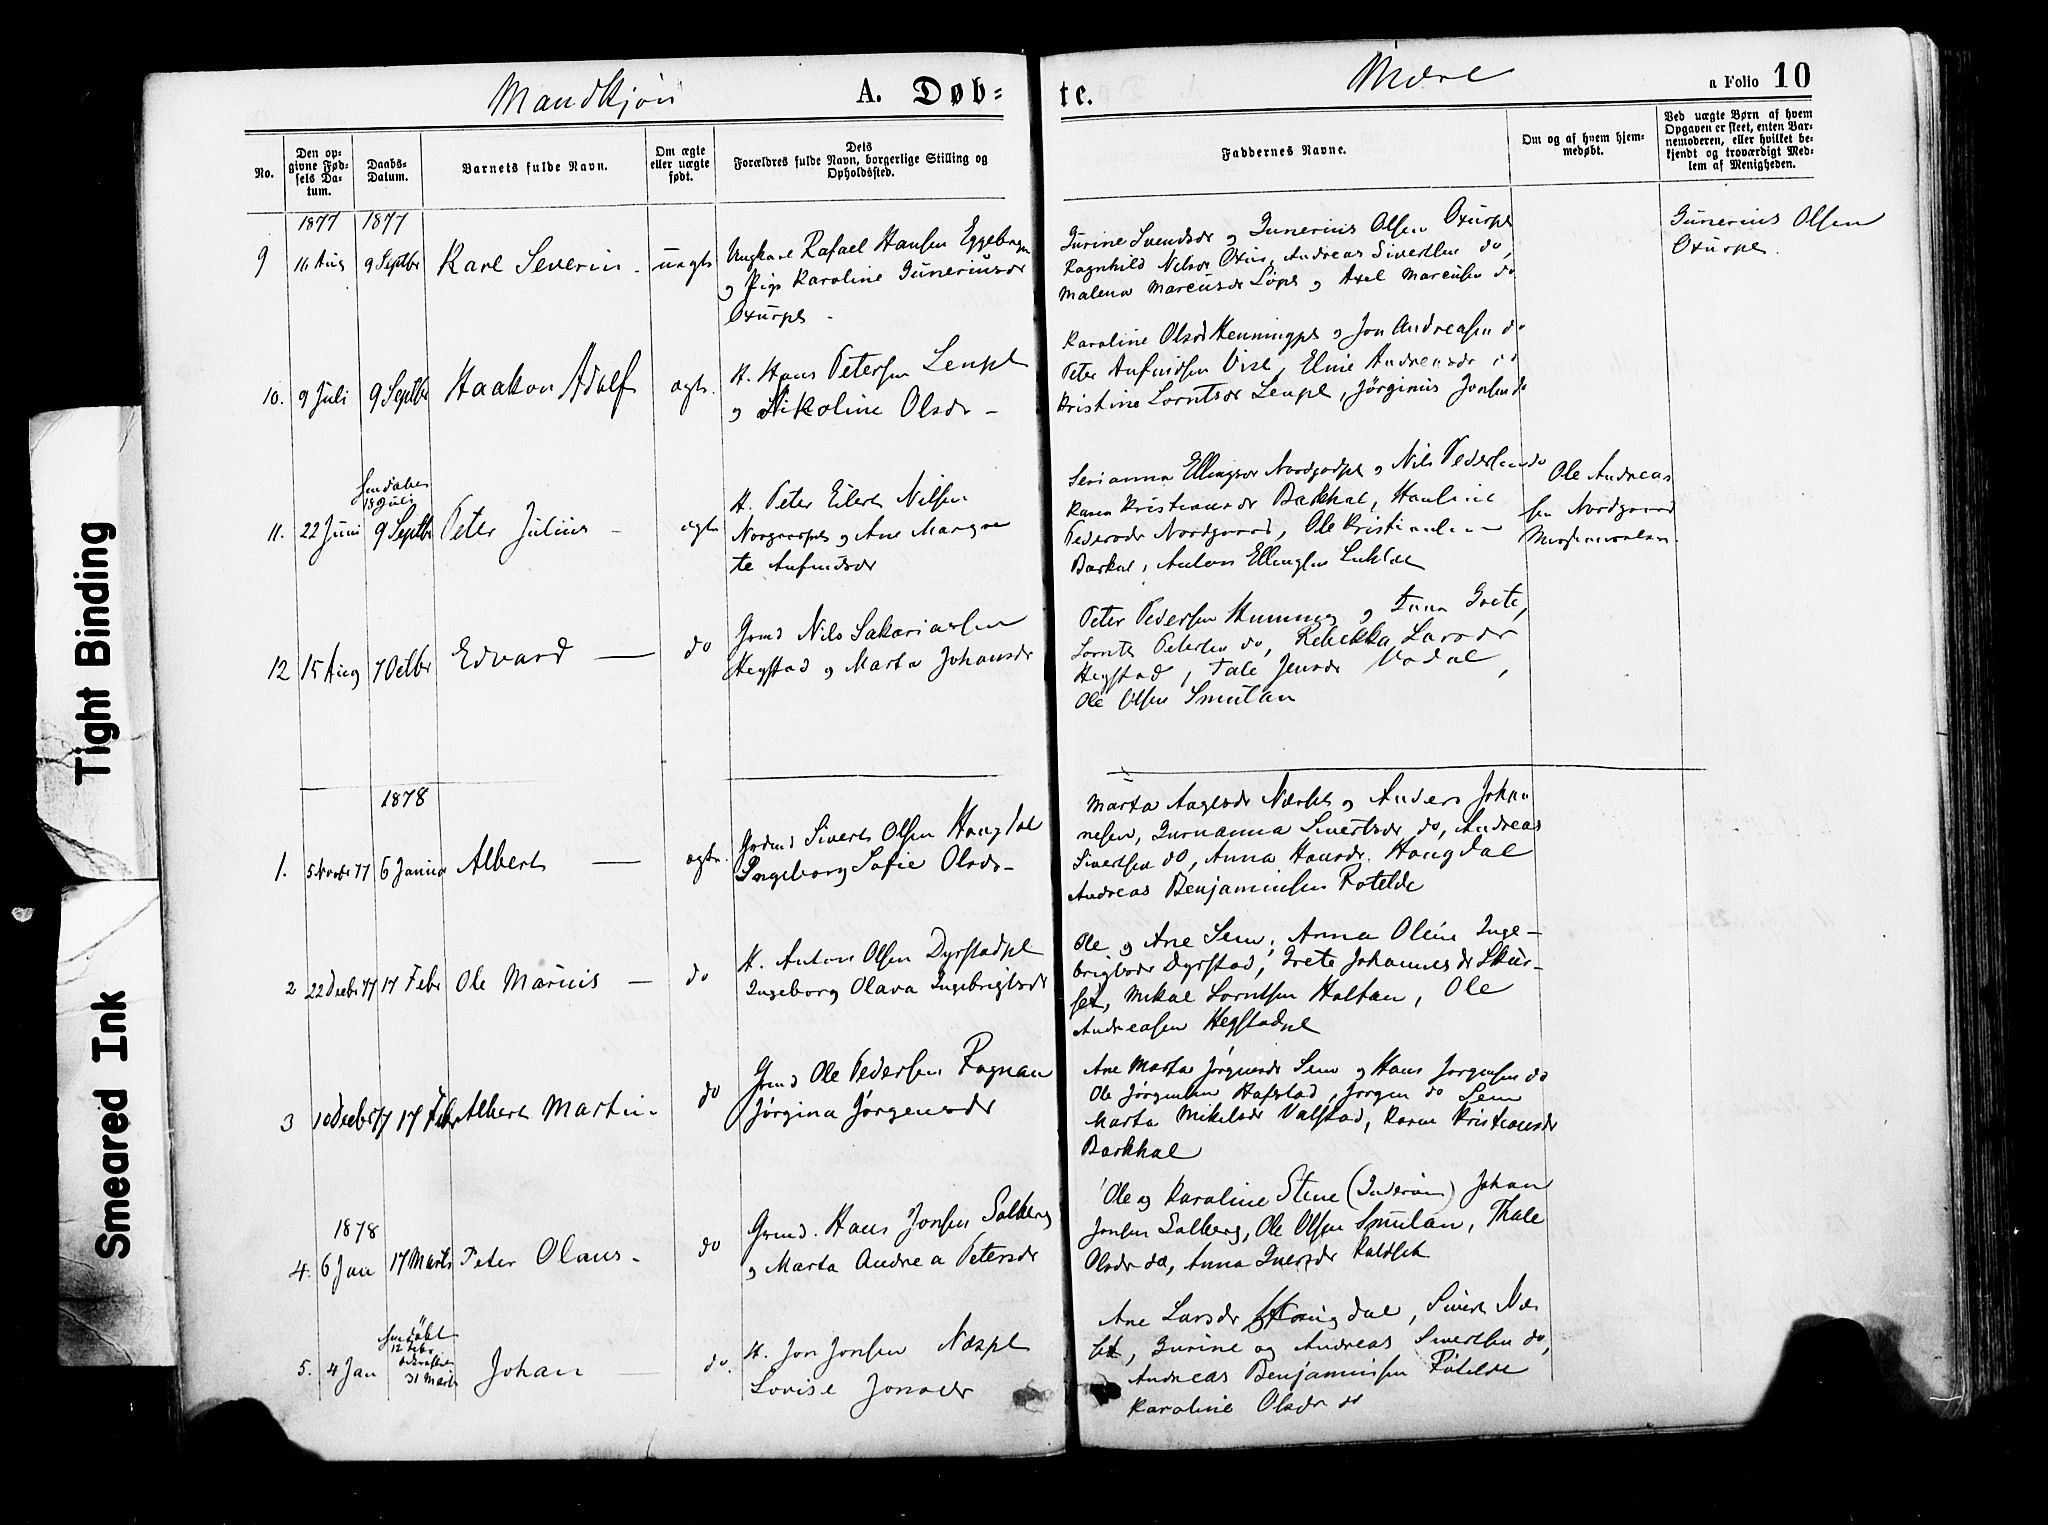 Mandkjøn A. Døb= te. Mære a Folio 10
No.
Den op=
givne Fød=
sels Da=
tum.
Daabs=
Datum.
Barnets fulde Navn.
Om ægte
eller uægte
født.
Dets
Forældres fulde Navn, borgerlige Stilling og
Opholdssted.
Faddernes Navne.
Om og af hvem hjem=
medøbt.
Ved uægte Børn af hvem
Opgaven er skeet, enten Bar=
nemoderen, eller hvilket be=
kjendt og troværdigt Med=
lem af Menigheden.
1877 1877
9 16 Aug 9 Septbr Karl Severin - uægte
Ungkarl Rafael Hansen
og Pige Karoline Guneriusdr
Oxurpl -
Gurine Svendsdr og Gunerius Olsen Oxurpl
Ragnhild Nilsdr Oxur, Andreas Sivertsen do,
Malena Marcusdr og Axel Marcusen do
Gunerius Olsen
Oxurpl.
10. 9 Juli 9 Septbr Haakon Adolf ægte.
H. Hans Petersen Lenpl
og Nikoline Olsdr -
Karoline Olsdr Henningpl og Jon Andreasen do
Peter Arfindsen Vist, Eline Andreasdr do
Kristine Lorntsdr Lenpl, Jørginius Jonsen do
11. 22 Juni
18 Juli
9 Septbr Peter Julius - ægte
H. Peter Eilert Nilsen
og Ane Margre
te Arfindsdr
Serianna Ellingsdr og Nils Pedersen do
Karen Kristiansdr Barkhal, Hauline
Pedersdr Nordgaard, Ole Kristiansen
Barkal, Anton Ellingsen
Ole Andreas
sen Nordgaard
12 15 Aug 7 Octbr Edvard — do
Grmd Nils Sakariassen
Hegstad og Marta Johansdr
Peter Pedersen og Grete,
Lornts Petersen do, Rebekka Larsdr
Hegstad, Tale Jensdr Vodal,
Ole Olsen Smulan
1878
1. 5 Novbr 77 6 Januar Albert — ægte.
Grdmd Sivert Olsen Haugdal
Ingeborg Sofie Olsdr -
Marta Aagesdr og Anders Johan
nesen, Gurianna Sivertsdr do, Andreas
Sivertsen do, Anna Hansdr. Haugdal
Andreas Benjaminsen Rotelde
2 22 Decbr 77 17 Febr Ole Marius — do
H. Anton Olsen Dyrstadpl
Ingeborg Olava Ingebrigtsdr
Ole og Ane Sem, Anna Oline Inge-
brigtsdr Dyrstad, Grete Johannesdr Skur-
set, Mikal Lorntsen Haltan, Ole
Andreasen Hegstadpl
3 10 Decbr 77 17 Febr Albert Martin - do
Grmd Ole Pedersen Rognan
Jørgina Jørgensdr
Ane Marta Jørgensdr Sem og Hans Jørgensen do
Ole Jørgensen Hafstad, Jørgen do Sem
Marta Mikelsdr Valstad, Karen Kristiansdr
Barkhal
1878
4. 6 Jan 17 Marts Peter Olaus - do
Grmd. Hans Jonsen Salberg
og Marta Andrea Petersdr
Ole og Karoline Stene (Inderøen) Johan
Jonsen Salberg, Ole Olsen Smulan, Thale
Olsdr do, Anna Iversdr Kaldset
5. 4 Jan
12 Febr
31 Marts
Johan — do.
H. Jon Jonsen Næspl
Lovise Jonsdr
Ane Larsdr Haugdal, Sivert Næs
set, Gurine og Andreas Sivertsen do,
Andreas Benjaminsen Rotelde
Karoline Olsdr do
Tight Binding
Smeared Ink